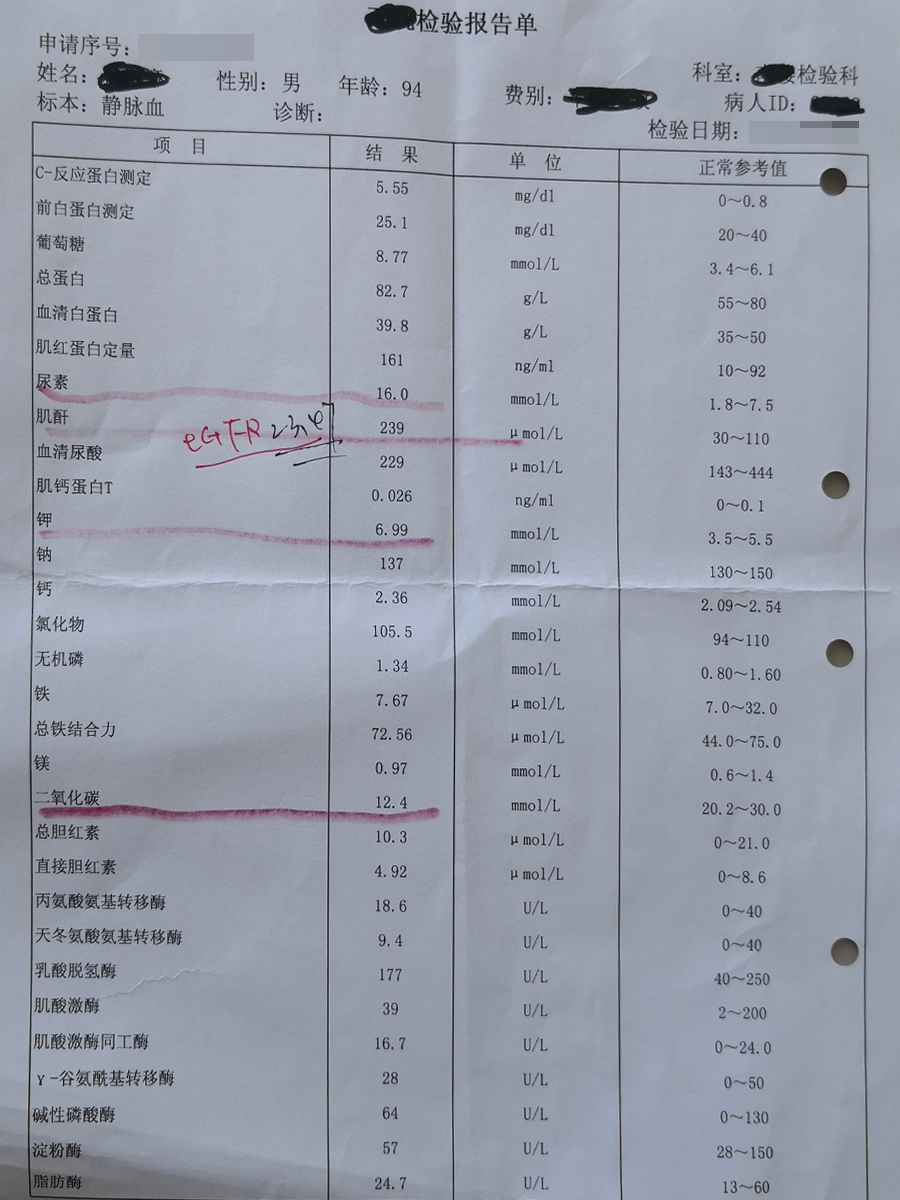 检验报告单
申请序号：
姓名： 性别：男 年龄：94 科室： 检验科
标本：静脉血 诊断： 费别： 病人ID：
检验日期：
项 目 结 果 单 位 正常参考值
C-反应蛋白测定 5.55 mg/dl 0～0.8
前白蛋白测定 25.1 mg/dl 20～40
葡萄糖 8.77 mmol/L 3.4～6.1
总蛋白 82.7 g/L 55～80
血清白蛋白 39.8 g/L 35～50
肌红蛋白定量 161 ng/ml 10～92
尿素 16.0 mmol/L 1.8～7.5
肌酐 239 μmol/L 30～110
eGFR
血清尿酸 229 μmol/L 143～444
肌钙蛋白T 0.026 ng/ml 0～0.1
钾 6.99 mmol/L 3.5～5.5
钠 137 mmol/L 130～150
钙 2.36 mmol/L 2.09～2.54
氯化物 105.5 mmol/L 94～110
无机磷 1.34 mmol/L 0.80～1.60
铁 7.67 μmol/L 7.0～32.0
总铁结合力 72.56 μmol/L 44.0～75.0
镁 0.97 mmol/L 0.6～1.4
二氧化碳 12.4 mmol/L 20.2～30.0
总胆红素 10.3 μmol/L 0～21.0
直接胆红素 4.92 μmol/L 0～8.6
丙氨酸氨基转移酶 18.6 U/L 0～40
天冬氨酸氨基转移酶 9.4 U/L 0～40
乳酸脱氢酶 177 U/L 40～250
肌酸激酶 39 U/L 2～200
肌酸激酶同工酶 16.7 U/L 0～24.0
γ-谷氨酰基转移酶 28 U/L 0～50
碱性磷酸酶 64 U/L 0～130
淀粉酶 57 U/L 28～150
脂肪酶 24.7 U/L 13～60